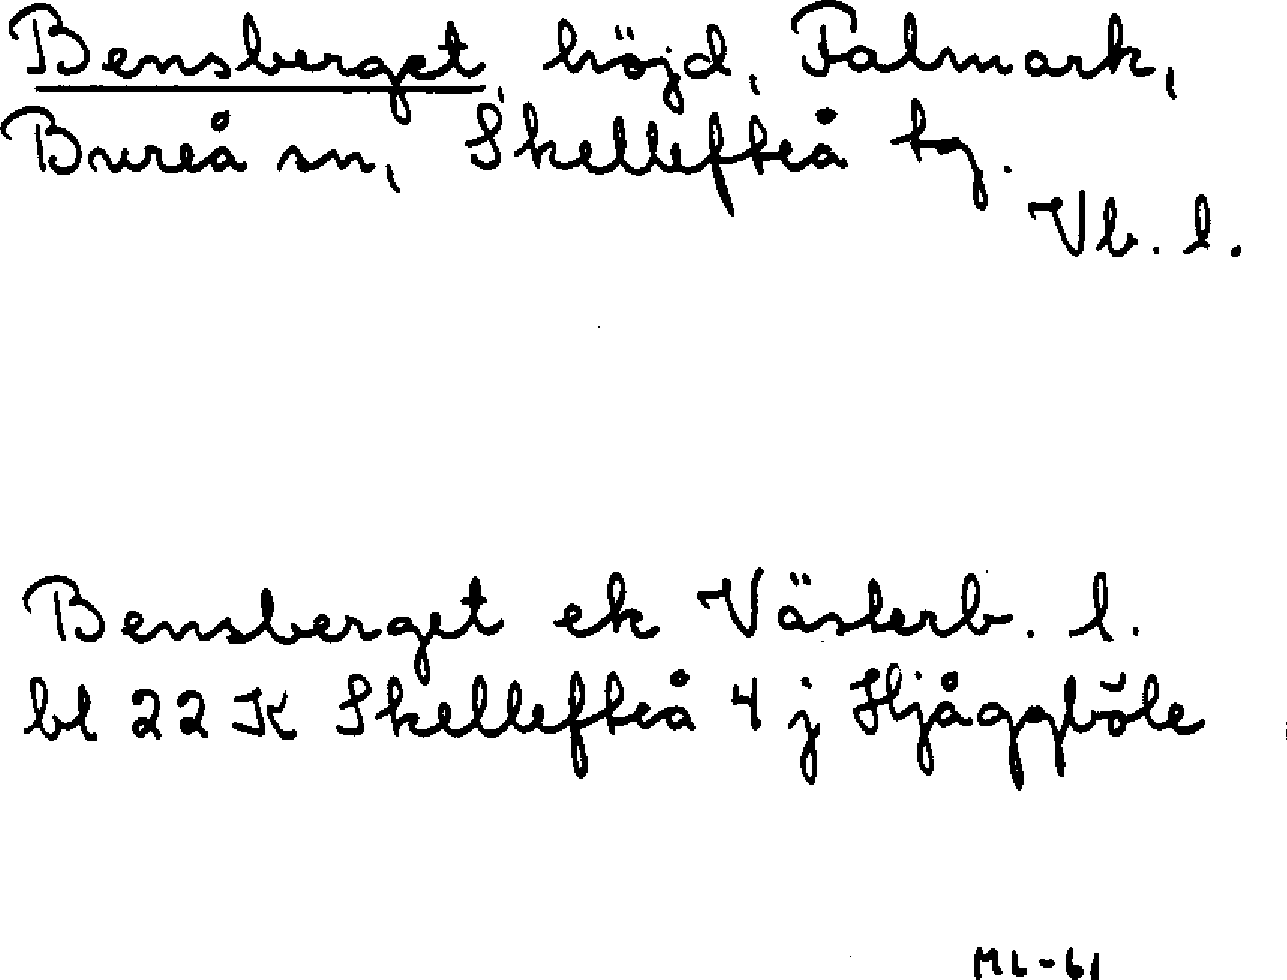 Bensberget, höjd, Falmark,
Bureå sn, Skellefteå tg.
Vb. l.
Bensberget ek Västerb. l.
bl 22 K Skellefteå 4 j Hjåggböle
ML-61